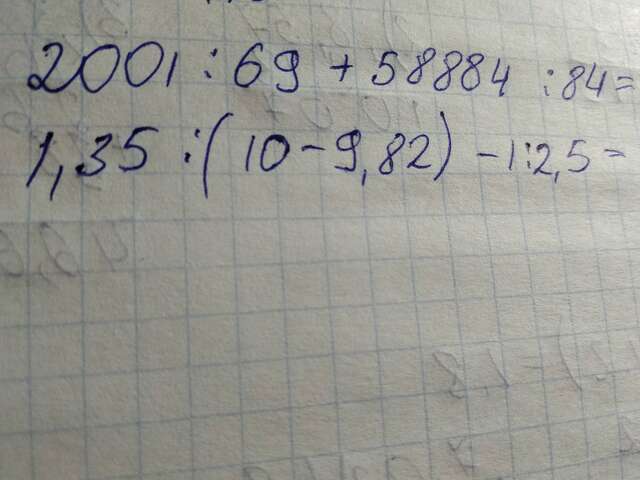 2001 : 69 + 58884 : 84 =
1,35 : ( 10 - 9,82 ) - 1 : 2,5 =